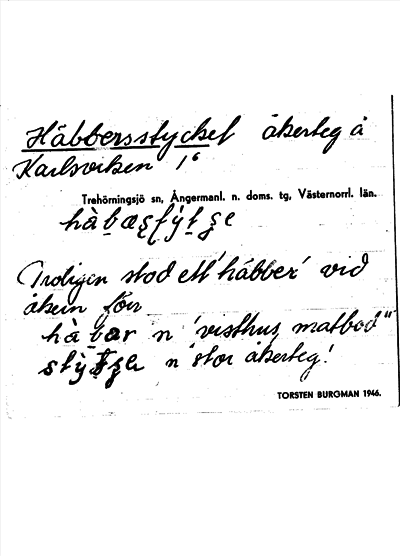 Häbbersstycket åkerteg å
Karlsviken 1⁶
Trehörningsjö sn, Ångermanl. n. doms. tg, Västernorrl. län.
Troligen stod ett 'häbber' vid
åkern förr
n 'visthus, matbod"
n 'stor åkerteg!
TORSTEN BURGMAN 1946.